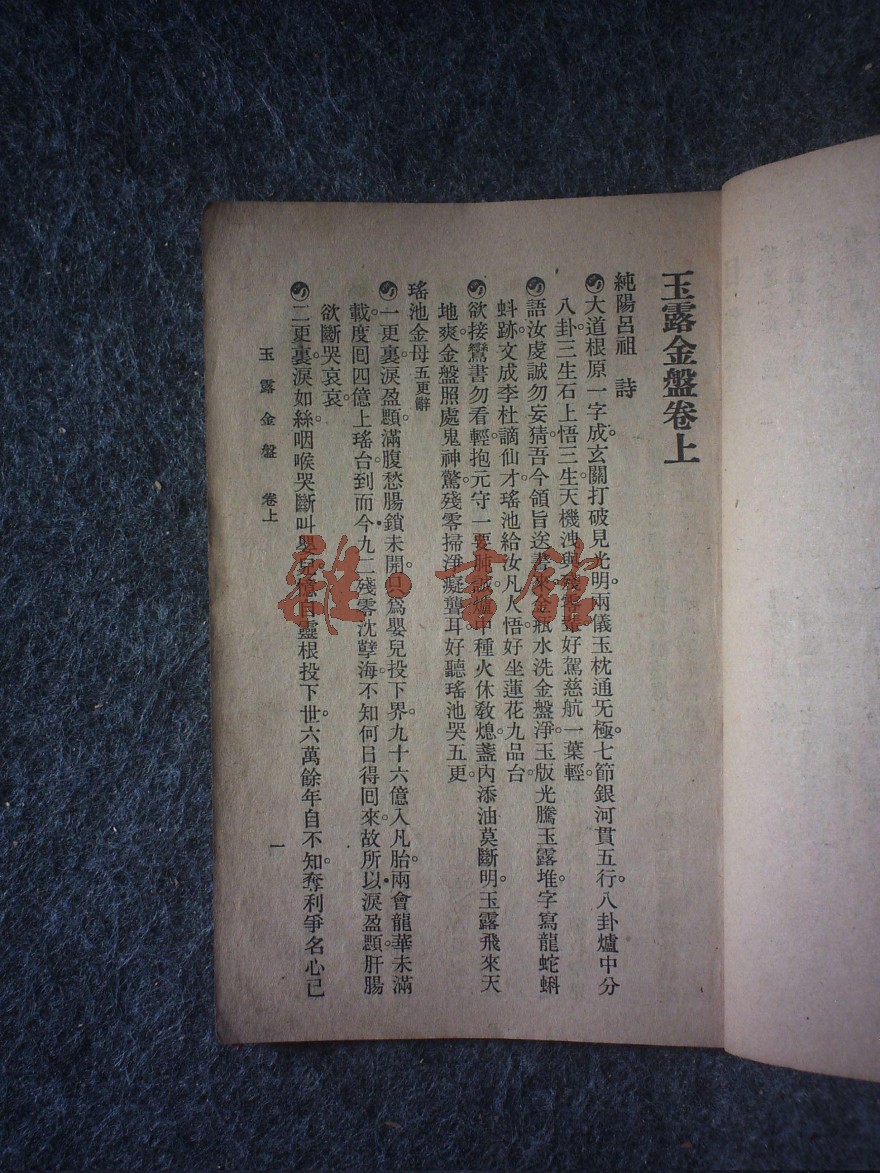 玉露金盤卷上
純陽呂祖 詩
大道根原一字成。玄關打破見光明。兩儀玉枕通旡極。七節銀河貫五行。八卦爐中分
八卦。三生石上悟三生。天機洩與殘零輩。好駕慈航一葉輕。
語汝虔誠勿妄猜。吾今領旨送書來。金瓶水洗金盤淨。玉版光騰玉露堆。字寫龍蛇蝌
蚪跡。文成李杜謫仙才。瑤池給汝凡人悟。好坐蓮花九品台。
欲接鸞書勿看輕。抱元守一要 誠。爐中種火休敎熄。盞內添油莫斷明。玉露飛來天
地爽。金盤照處鬼神驚。殘零掃淨癡聾耳。好聽瑤池哭五更。
瑤池金母五更辭
一更裏。淚盈顋。滿腹愁腸鎖未開。只爲嬰兒投下界。九十六億入凡胎。兩會龍華未滿
載。度回四億上瑤台。到而今九二殘零沈孽海。不知何日得回來。故所以淚盈顋。肝腸
欲斷哭哀哀。
二更裏。淚如絲。咽喉哭斷叫嬰兒。憶自靈根投下世。六萬餘年自不知。奪利爭名心已
玉露金盤 卷上
一
雜·書館